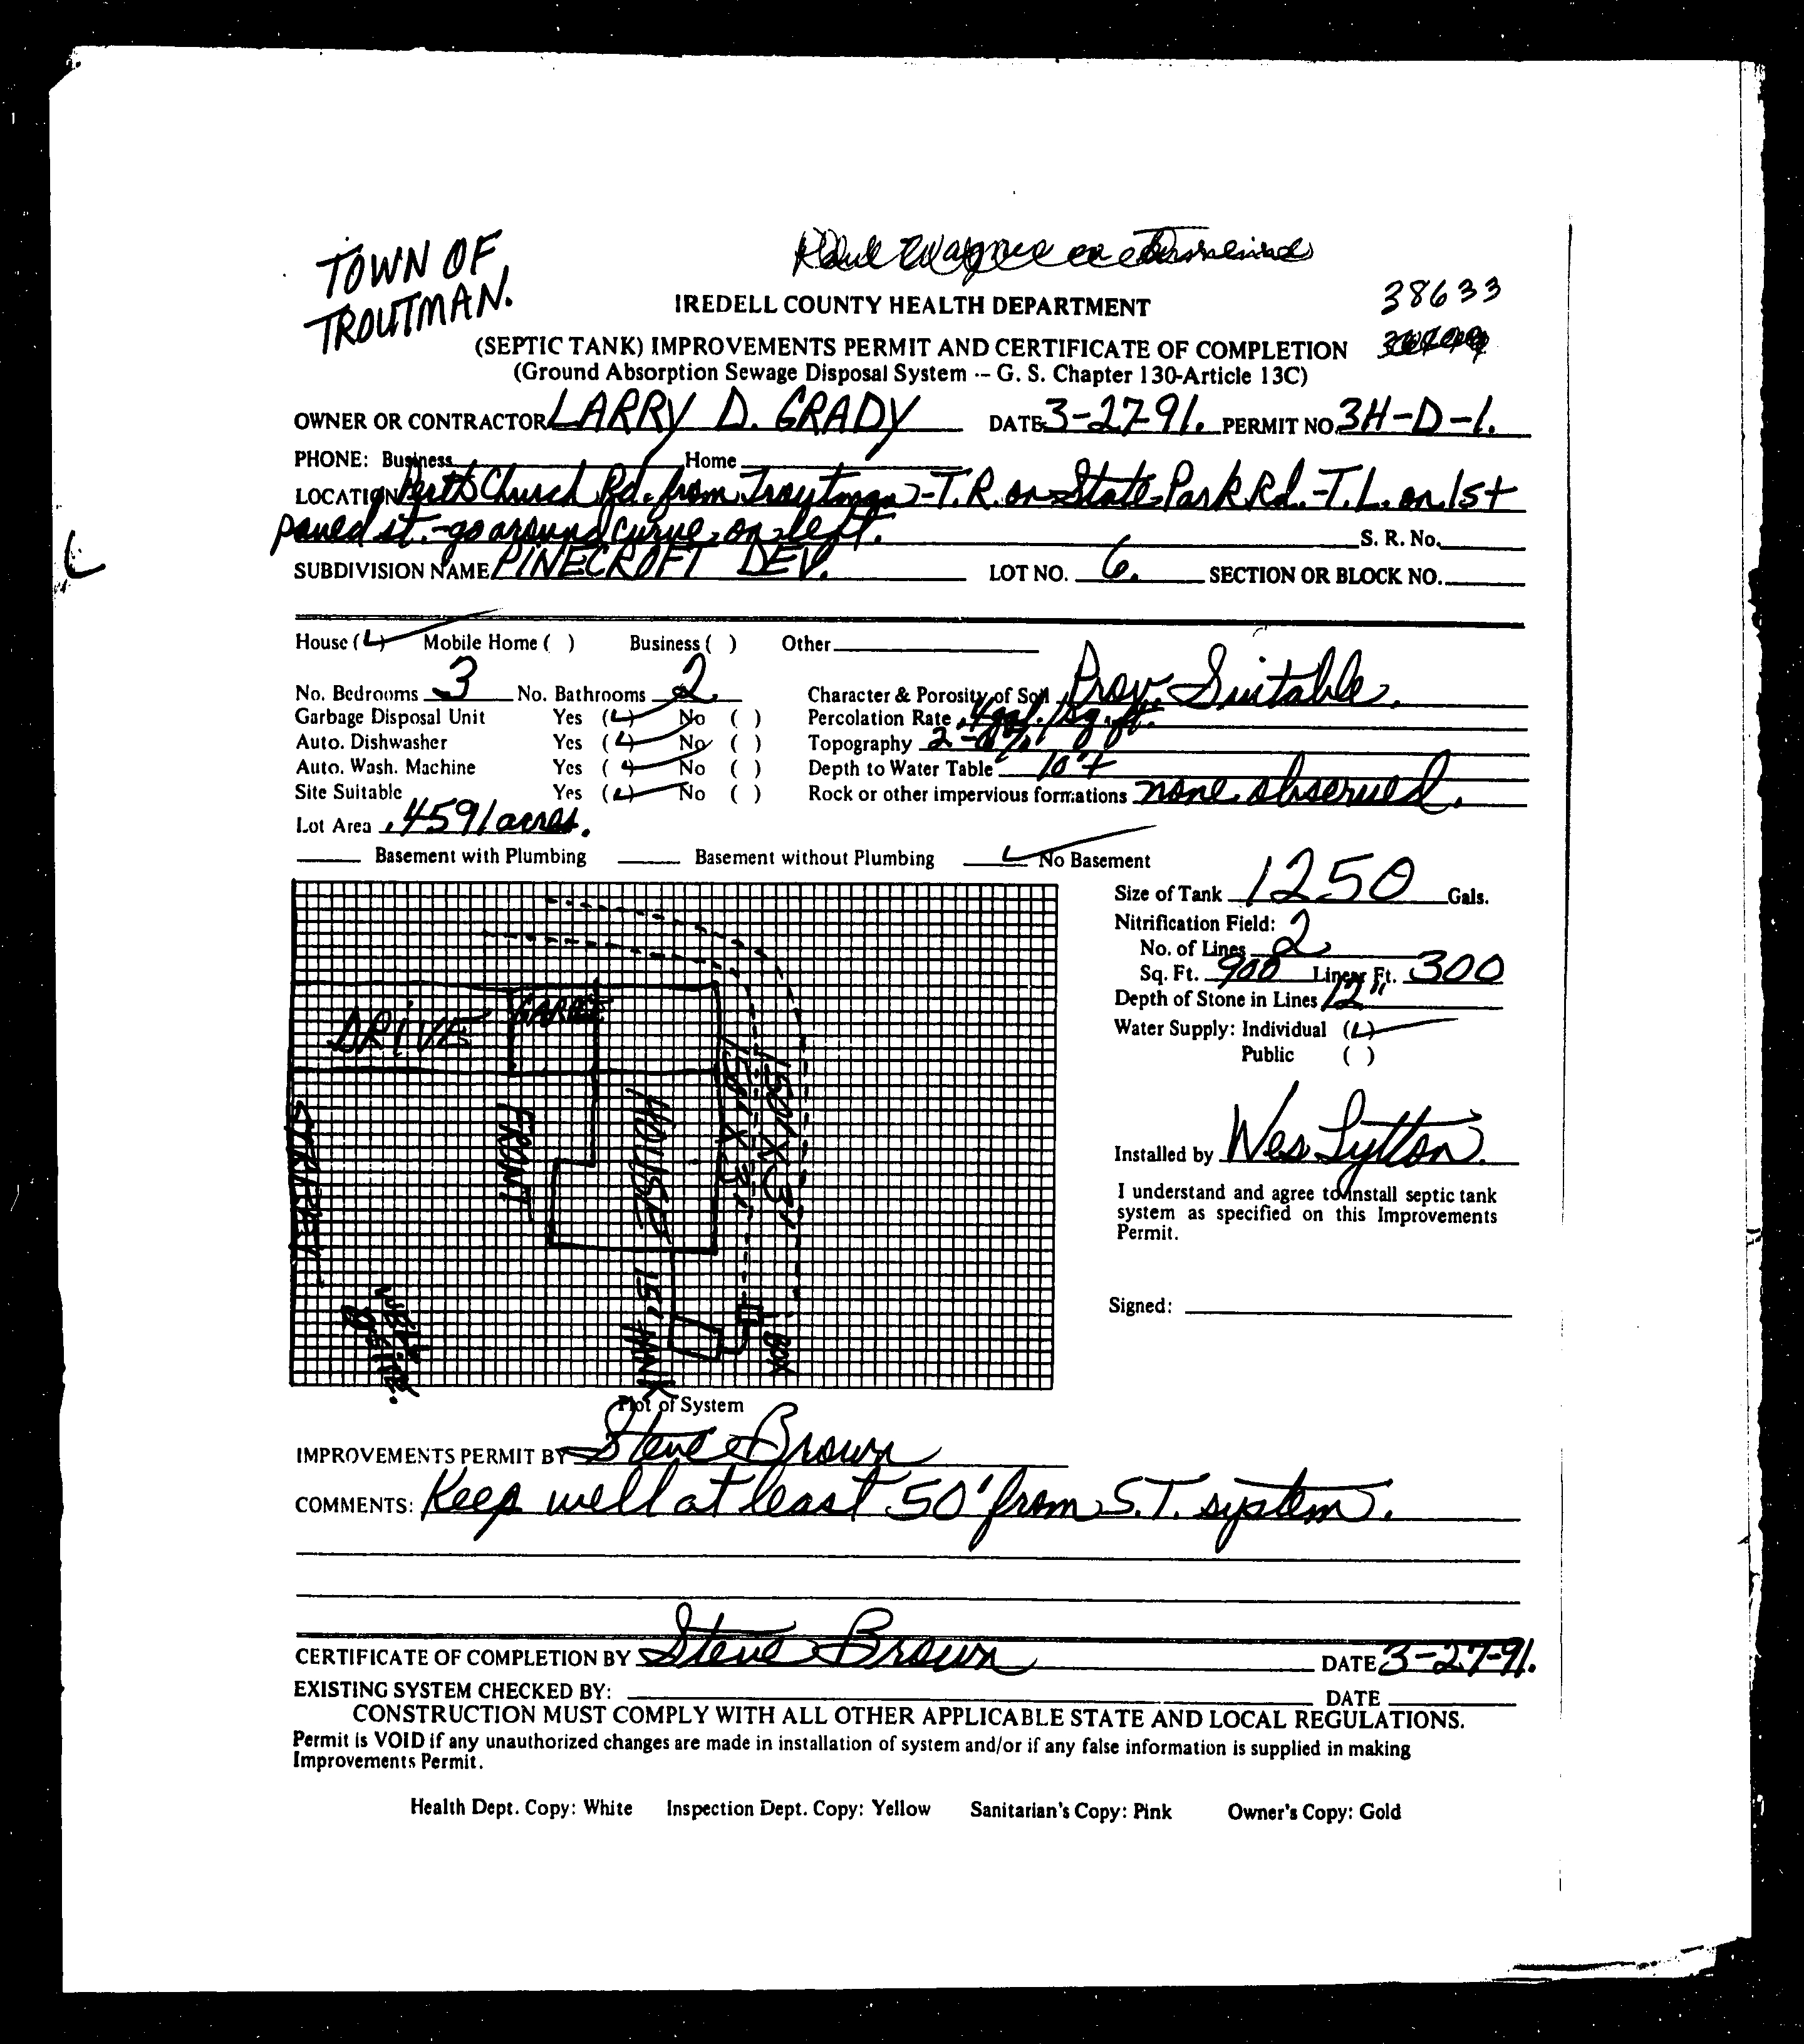 TOWN OF
TROUTMAN.
38633
IREDELL COUNTY HEALTH DEPARTMENT
(SEPTIC TANK) IMPROVEMENTS PERMIT AND CERTIFICATE OF COMPLETION
(Ground Absorption Sewage Disposal System -- G. S. Chapter 130-Article 13C)
OWNER OR CONTRACTOR LARRY D. GRADY DATE 3-27-91. PERMIT NO. 3H-D-1.
PHONE: Business Home
LOCATION Perth Church Rd. from Troutman-T.R. on State Park Rd.-T.L. on 1st
paved st.-go around curve, on left. S. R. No.
SUBDIVISION NAME PINECROFT DEV. LOT NO. 6. SECTION OR BLOCK NO.
House ( ) Mobile Home ( ) Business ( ) Other
No. Bedrooms 3 No. Bathrooms 2 Character & Porosity of Soil Prov. Suitable.
Garbage Disposal Unit Yes ( ) No ( ) Percolation Rate .4 gal./sq. ft.
Auto. Dishwasher Yes ( ) No ( ) Topography 2-6%
Auto. Wash. Machine Yes ( ) No ( ) Depth to Water Table 10'+
Site Suitable Yes ( ) No ( ) Rock or other impervious formations none observed.
Lot Area .4591 acres.
Basement with Plumbing Basement without Plumbing No Basement
Size of Tank 1250 Gals.
Nitrification Field:
No. of Lines 2
Sq. Ft. 900 Linear Ft. 300
Depth of Stone in Lines 12"
Water Supply: Individual ( )
Public ( )
DRIVE
FRONT
HOUSE
150' X 3'
150' X 3'
15'
TANK
BOX
Installed by Wes Lytton.
I understand and agree to install septic tank
system as specified on this Improvements
Permit.
Signed:
Plot of System
IMPROVEMENTS PERMIT BY Steve Brown
COMMENTS: Keep well at least 50' from S.T. system.
CERTIFICATE OF COMPLETION BY Steve Brown DATE 3-27-91.
EXISTING SYSTEM CHECKED BY: DATE
CONSTRUCTION MUST COMPLY WITH ALL OTHER APPLICABLE STATE AND LOCAL REGULATIONS.
Permit is VOID if any unauthorized changes are made in installation of system and/or if any false information is supplied in making
Improvements Permit.
Health Dept. Copy: White Inspection Dept. Copy: Yellow Sanitarian's Copy: Pink Owner's Copy: Gold